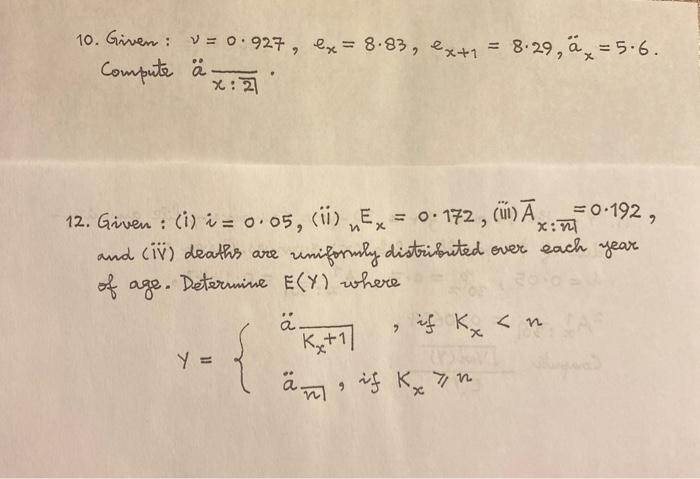 10. Given : v = 0.927, eₓ = 8.83, eₓ₊₁ = 8.29, äₓ = 5.6.
Compute ä‾x:2̅| .
12. Given : (i) i = 0.05, (ii) ₙEₓ = 0.172, (iii) Āx:n̅| = 0.192,
and (iv) deaths are uniformly distributed over each year
of age. Determine E(Y) where
ä K̅ₓ+̅1̅| , if Kₓ < n
Y = {
ä n̅| , if Kₓ ⩾ n